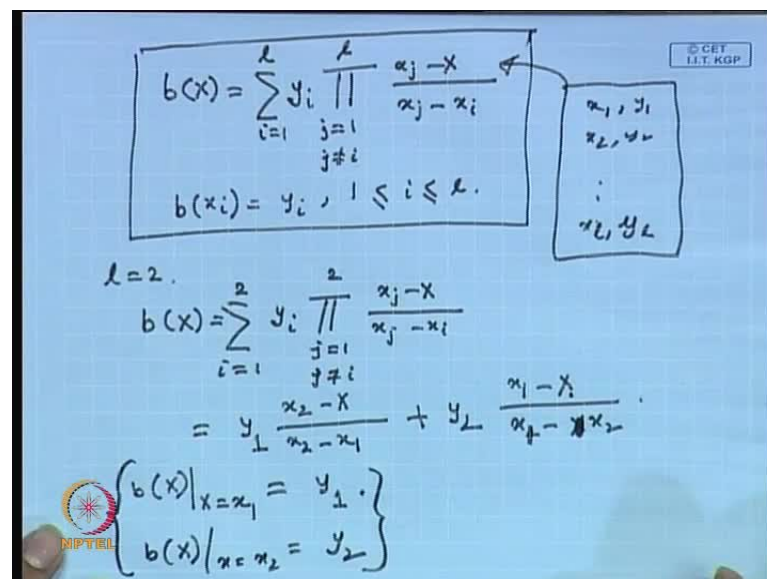 © CET
I.I.T. KGP
b(X) = \sum_{i=1}^{l} y_i \prod_{j=1, j≠i}^{l} \frac{x_j - X}{x_j - x_i}
b(x_i) = y_i , 1 ⩽ i ⩽ l.
x_1, y_1
x_2, y_2
:
x_l, y_l
l = 2.
b(X) = \sum_{i=1}^{2} y_i \prod_{j=1, j≠i}^{2} \frac{x_j - X}{x_j - x_i}
= y_1 \frac{x_2 - X}{x_2 - x_1} + y_2 \frac{x_1 - X}{x_1 - x_2} .
b(X)|_{X=x_1} = y_1 .
b(X)|_{x=x_2} = y_2
NPTEL